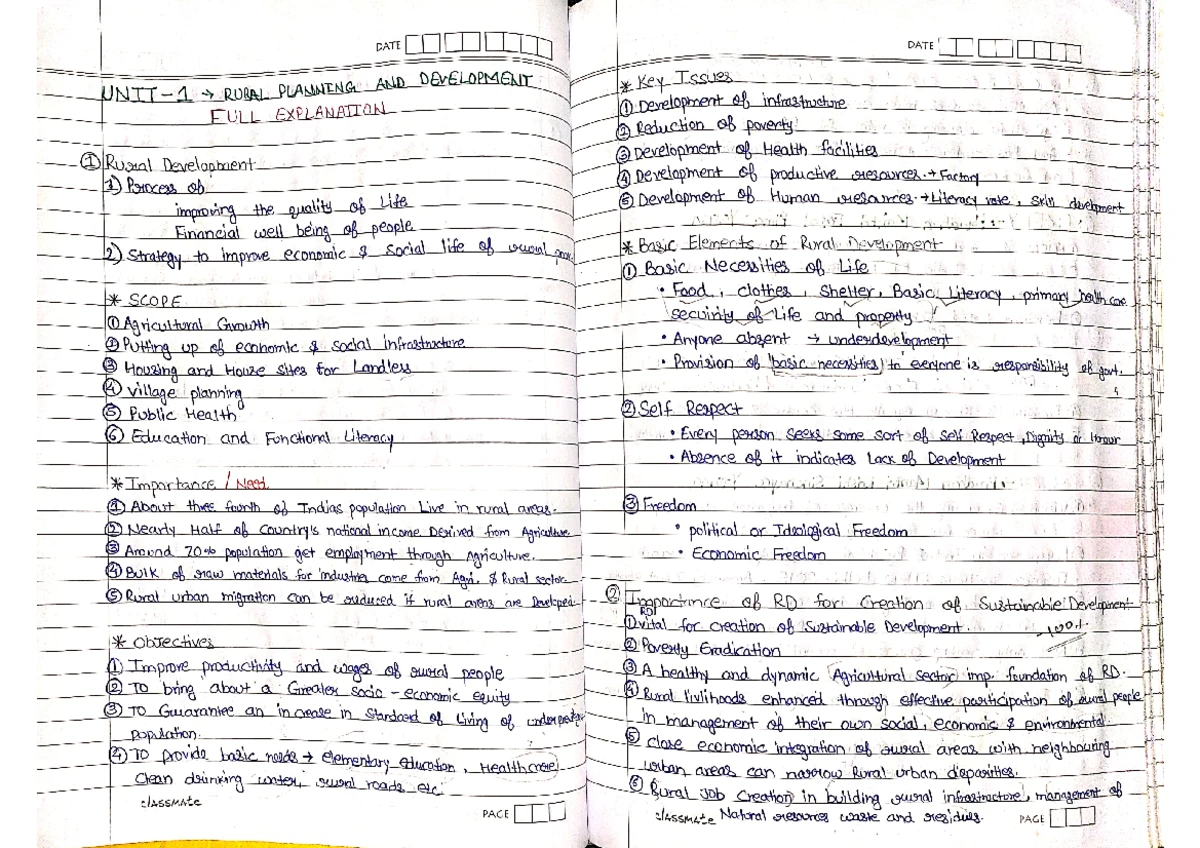 DATE
UNIT-1 → RURAL PLANNING AND DEVELOPMENT
FULL EXPLANATION
① Rural Development
1) Process of
improving the quality of Life
Financial well being of people
2) Strategy to improve economic & social life of rural
* SCOPE
① Agricultural Growth
② Putting up of economic & social infrastructure
③ Housing and House sites for Landless
④ village planning
⑤ Public Health
⑥ Education and Functional Literacy
* Importance / Need
① About three fourth of India's population Live in rural areas.
② Nearly Half of Country's national income Derived from Agriculture
③ Around 70% population get employment through Agriculture.
④ Bulk of raw materials for industries come from Agri. & Rural sector
⑤ Rural urban migration can be reduced if rural areas are Developed
* Objectives
① Improve productivity and wages of rural people
② To bring about a Greater socio-economic equity
③ To Guarantee an increase in Standard of Living of
population.
④ To provide basic needs → elementary education, Healthcare
Clean drinking water, rural roads etc.
classmate
PAGE
DATE
* Key Issues
① Development of infrastructure
② Reduction of poverty
③ Development of Health facilities
④ Development of productive resources. → Factory
⑤ Development of Human resources. → Literacy rate, skill development
* Basic Elements of Rural Development
① Basic Necessities of Life
• Food, clothes, Shelter, Basic Literacy, primary health care
security of Life and property
• Anyone absent → underdevelopment
• Provision of (basic necessities) to everyone is responsibility of govt.
② Self Respect
• Every person seeks some sort of Self Respect, Dignity or Honour
• Absence of it indicates Lack of Development
③ Freedom
• political or Ideological Freedom
• Economic Freedom
② Importance of RD for Creation of Sustainable Development
RD
① vital for creation of Sustainable Development.
② Poverty Eradication
③ A healthy and dynamic Agricultural sector imp. foundation of RD.
④ Rural livlihoods enhanced through effective participation of rural people
in management of their own social, economic & environmental
⑤ close economic integration of rural areas with neighbouring
urban areas can narrow Rural urban disparities.
⑥ Rural Job Creation in building rural infrastructure, management of
classmate Natural resources waste and residues.
PAGE